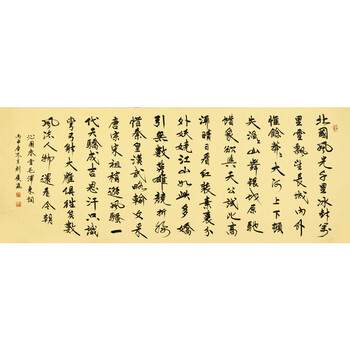 北國風光千里冰封萬
里雪飄望長城內外
惟餘莽莽大河上下頓
失滔滔山舞銀蛇原馳
蠟象欲與天公試比高
須晴日看紅裝素裹分
外妖嬈江山如此多嬌
引無數英雄競折腰
惜秦皇漢武略輸文采
唐宗宋祖稍遜風騷一
代天驕成吉思汗只識
彎弓射大雕俱往矣數
風流人物還看今朝
沁園春雪毛澤東詞
丙申年冬